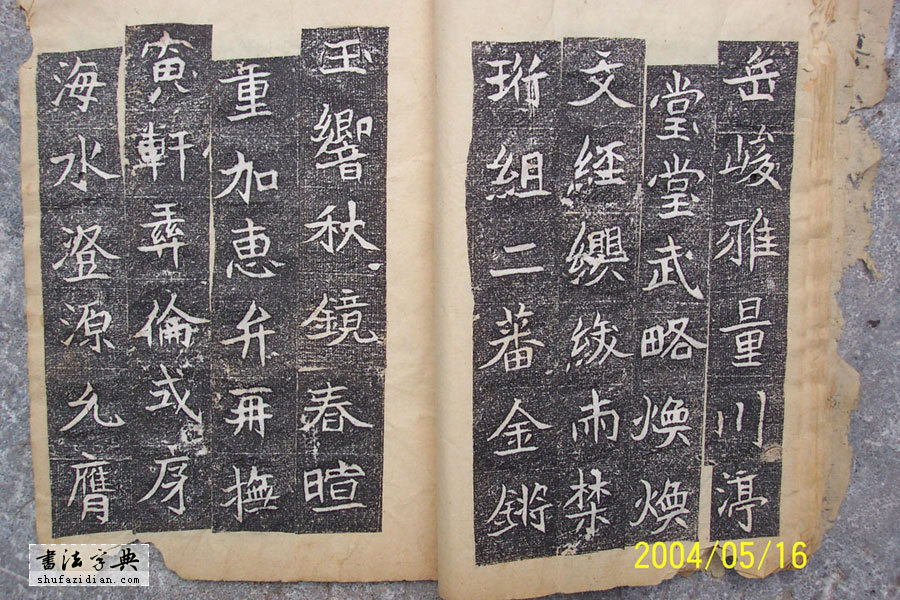 岳峻雅量川渟
堂堂武略煥煥
文經纓紱兩禁
珩組二蕃金鏘
玉響秋鏡春暄
重加惠弁再撫
寅軒彝倫式序
海水澄源允膺
2004/05/16
書法字典
shufazidian.com